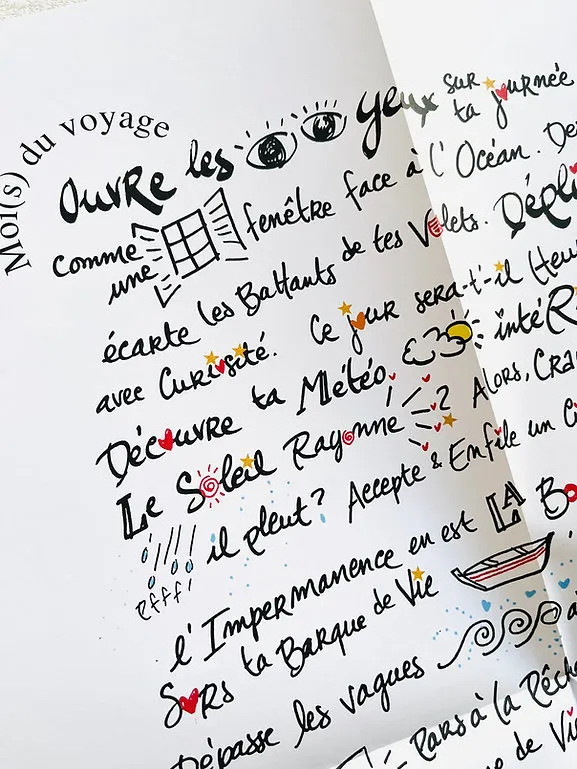 Moi(s) du voyage
Ouvre les yeux sur ta journée
Comme une fenêtre face à l'Océan.
écarte les Battants de tes Volets.
avec Curiosité. Ce jour sera-t-il
Découvre ta Météo intéRi
Le Soleil Rayonne ? Alors,
il pleut? Accepte & Enfile un
Pffff!
l'Impermanence en est LA
Sors ta Barque de Vie
Dépasse les vagues
Pars à la Pêche
de Vie